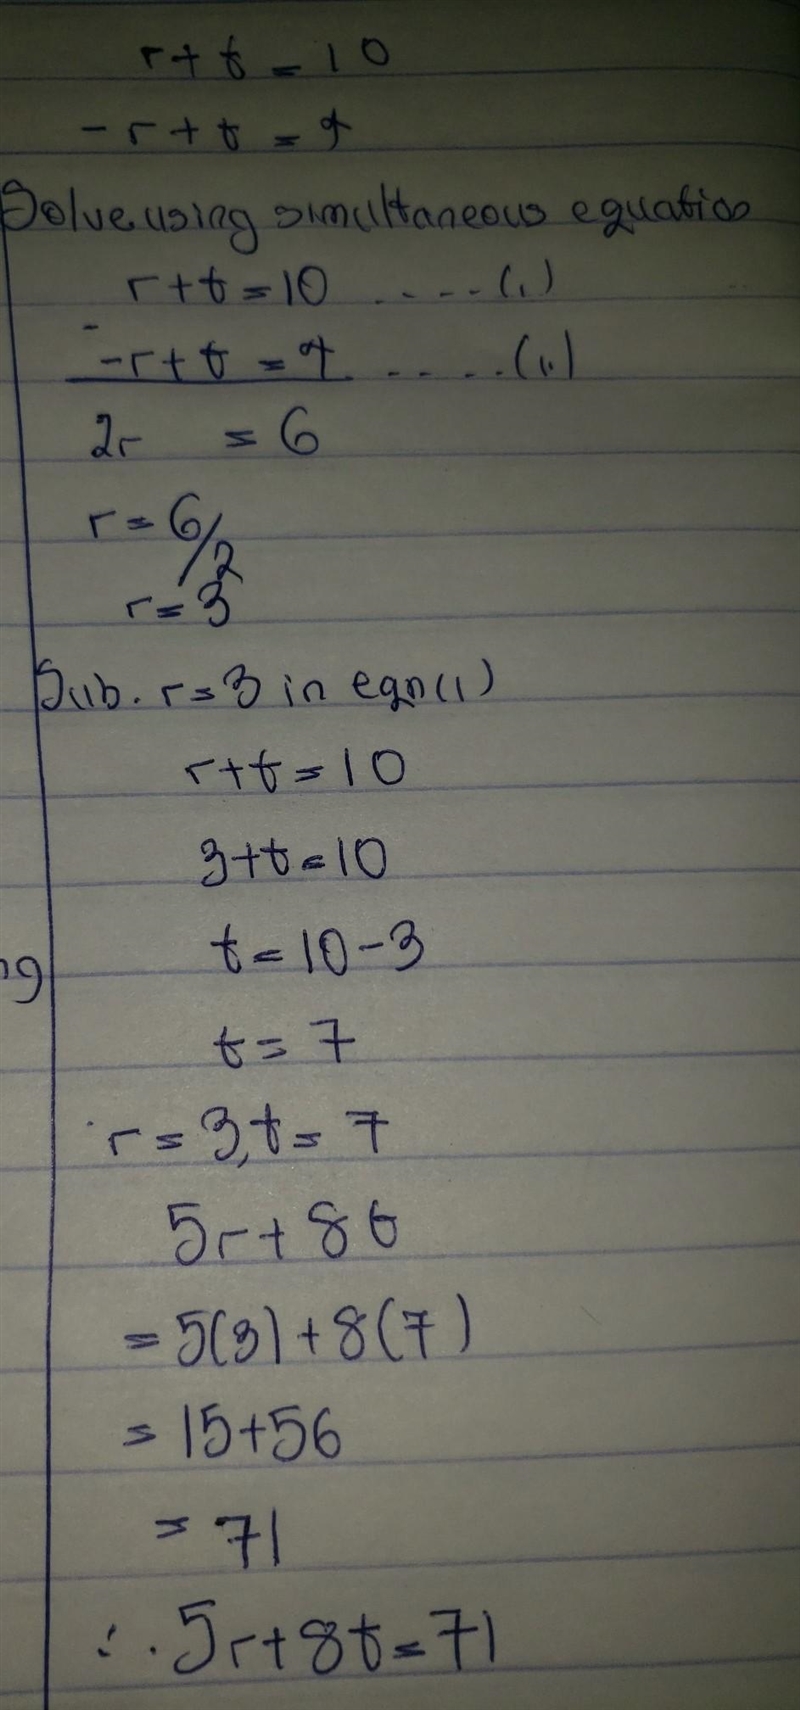 r+t=10
-r+t=4
Solve using simultaneous equation
r+t=10 .....(1)
-
-r+t=4 .....(11)
2r =6
r=6/2
r=3
Sub. r=3 in eqn(1)
r+t=10
3+t=10
t=10-3
ng
t=7
r=3,t=7
5r+8t
=5(3)+8(7)
=15+56
=71
∴ 5r+8t=71